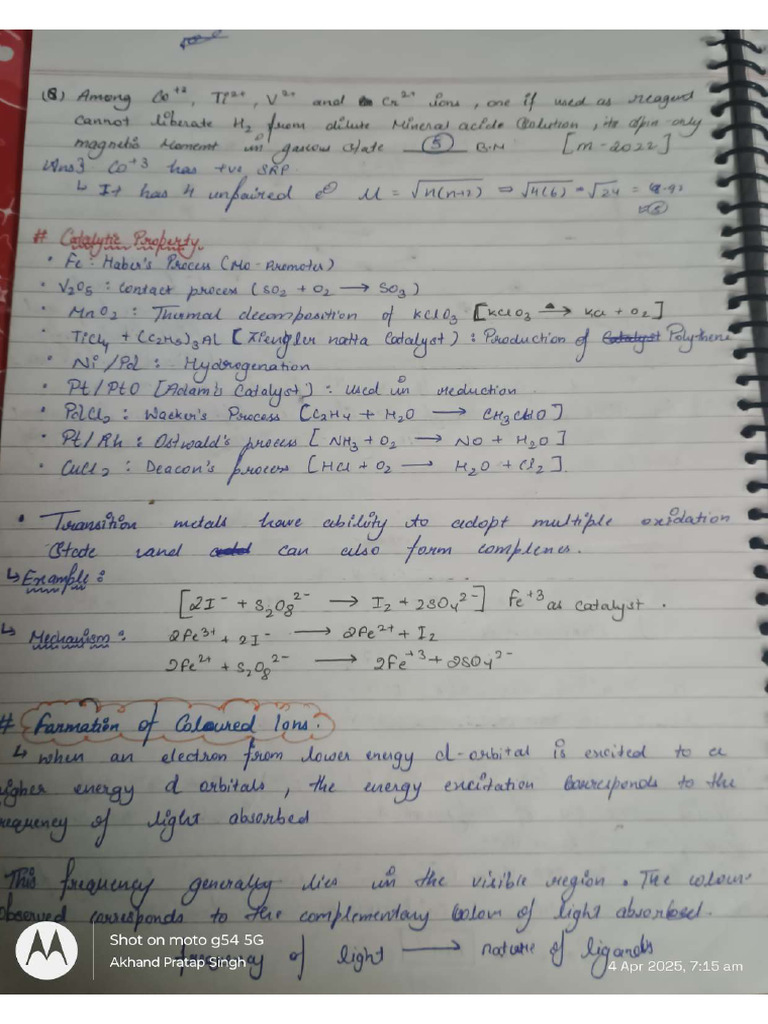 (8) Among Co⁺³, Ti²⁺, V²⁺ and Cr²⁺ ions, one if used as reagent
cannot liberate H₂ from dilute Mineral acide Solution, its Spin-only
magnetic Moment in gaseous State (5) B.M [M-2022]
Ans} Co⁺³ has +ve SRP
↳ It has 4 unpaired e⊖ M = √n(n+2) ⇒ √4(6) = √24 = 4.92
≈5
# Catalytic Property.
• Fe : Haber's Process (Mo-Promoter)
• V₂O₅ : contact process (SO₂ + O₂ → SO₃)
• MnO₂ : Thermal decomposition of KClO₃ [KClO₃ –Δ→ KCl + O₂]
• TiCl₄ + (C₂H₅)₃Al [Ziengler natta Catalyst) : Production of Catalyst Polythene
• Ni/Pd : Hydrogenation
• Pt/PtO [Adam's Catalyst] : used in reduction
• PdCl₂ : Wacker's Process [C₂H₄ + H₂O → CH₃CHO]
• Pt/Rh : Ostwald's process [NH₃ + O₂ → NO + H₂O]
• CuCl₂ : Deacon's process [HCl + O₂ → H₂O + Cl₂].
• Transition metals have ability to adopt multiple oxidation
State and can also form complexes.
↳ Example :
[2I⁻ + S₂O₈²⁻ → I₂ + 2SO₄²⁻] Fe⁺³ as catalyst.
↳ Mechanism : 2Fe³⁺ + 2I⁻ → 2Fe²⁺ + I₂
2Fe²⁺ + S₂O₈²⁻ → 2Fe⁺³ + 2SO₄²⁻
# Formation of Coloured Ions.
↳ when an electron from lower energy d-orbital is excited to a
higher energy d orbitals, the energy excitation corresponds to the
frequency of light absorbed
This frequency generally lies in the visible region. The colour
observed corresponds to the complementary colour of light absorbed.
frequency of light → nature of ligands
Shot on moto g54 5G
Akhand Pratap Singh
4 Apr 2025, 7:15 am